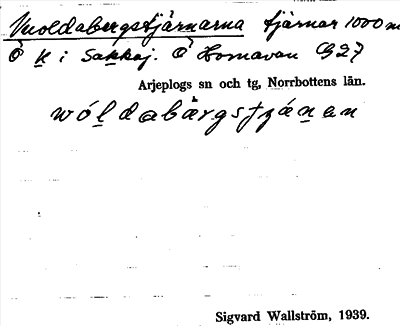 Vuoldabergstjärnarna tjärnar 1000 m
Ö K i Sakkaj. Ö Hornavan G27
Arjeplogs sn och tg, Norrbottens län.
wóldabärgstjánan
Sigvard Wallström, 1939.